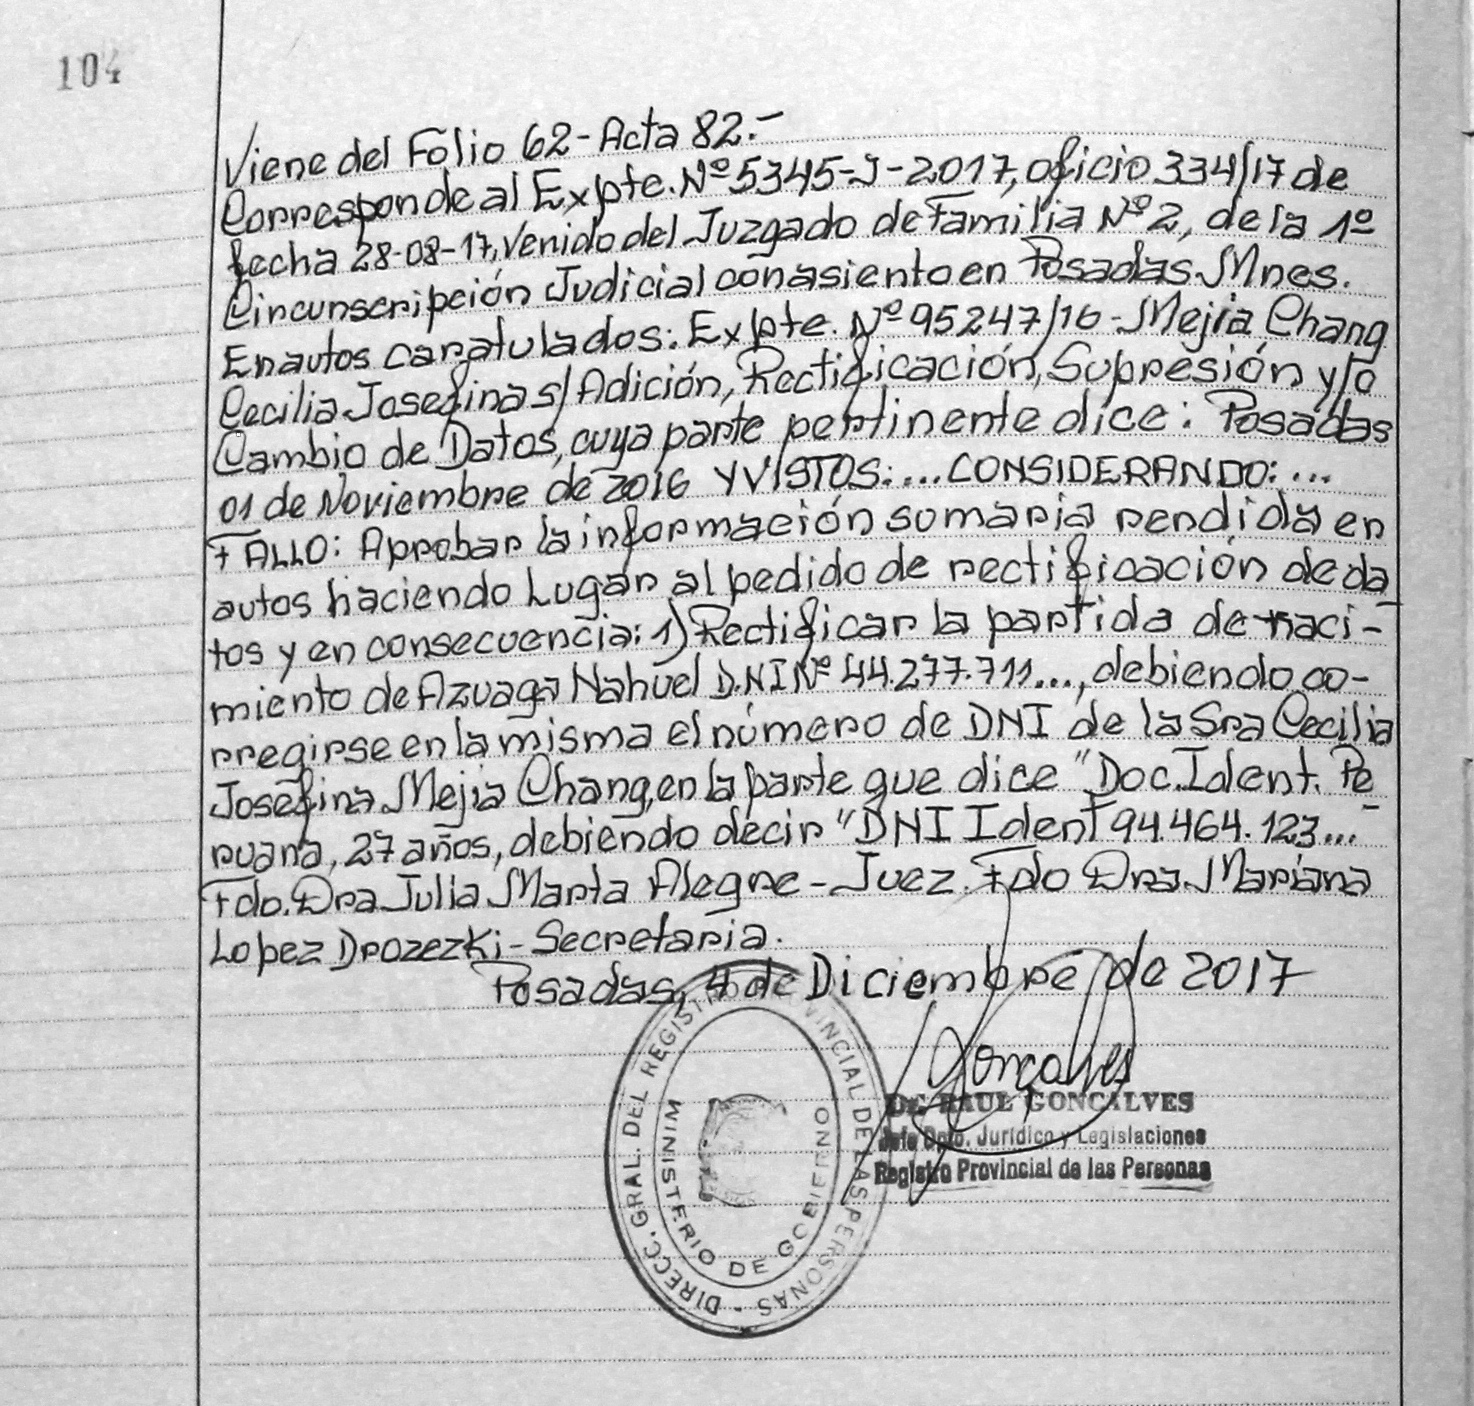 104
Viene del Folio 62-Acta 82.-
Corresponde al Expte. Nº 5345-J-2017, oficio 334/17 de
fecha 28-08-17, venido del Juzgado de Familia Nº 2, de la 1º
Circunscripción Judicial con asiento en Posadas. Mnes.
En autos caratulados: Expte. Nº 95247/16 - Mejia Chang
Cecilia Josefina s/ Adición, Rectificación, Supresión y/o
Cambio de Datos, cuya parte pertinente dice: Posadas
01 de Noviembre de 2016 Y VISTOS:... CONSIDERANDO:...
FALLO: Aprobar la información sumaria rendida en
autos haciendo Lugar al pedido de rectificación de da
tos y en consecuencia: 1) Rectificar la partida de naci-
miento de Azuaga Nahuel D.NI Nº 44.277.711..., debiendo co-
rregirse en la misma el número de DNI de la Sra Cecilia
Josefina Mejia Chang, en la parte que dice "Doc. Ident. Pe
ruana, 27 años, debiendo decir "DNI Ident 94.464.123...
Fdo. Dra Julia Marta Alegre - Juez. Fdo Dra. Mariana
Lopez Drozezki - Secretaria.
Posadas, 4 de Diciembre de 2017
Goncalves
Dr. RAUL GONCALVES
Jefe Dpto. Jurídico y Legislaciones
Registro Provincial de las Personas
DIRECC. GRAL. DEL REGISTRO PROVINCIAL DE LAS PERSONAS -
MINISTERIO DE GOBIERNO